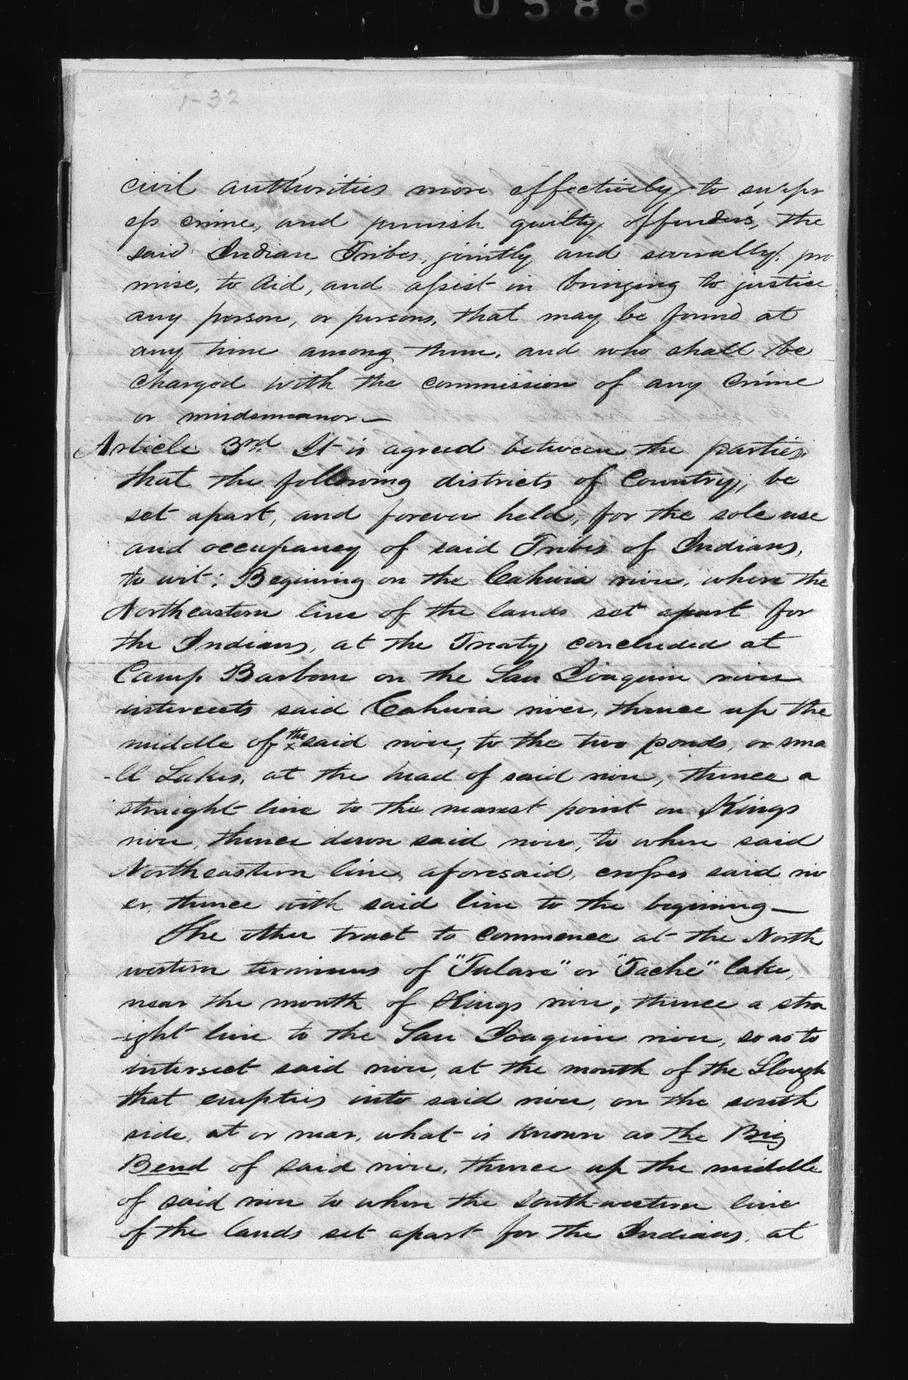 0588
1-32
civil authorities more effectively to suppr
ess crime, and punish guilty offenders, the
said Indian Tribes, jointly and severally, pro
mise, to aid, and assist in bringing to justice
any person, or persons, that may be found at
any time among them, and who shall be
charged with the commission of any crime
or misdemeanor—
Article 3rd. It is agreed between the parties,
that the following districts of Country, be
set apart, and forever held, for the sole use
and occupancy of said Tribes of Indians,
to wit: Begining on the Cahwia river, where the
Northeastern line of the lands set apart for
the Indians, at the Treaty concluded at
Camp Barbour on the San Joaquin river
intersects said Cahwia river, thence up the
middle of the said river, to the two ponds, or sma
-ll Lakes, at the head of said river, thence a
straight line to the nearest point on Kings
river, thence down said river, to where said
Northeastern line, aforesaid, crosses said riv
er, thence with said line to the begining—
The other tract to commence at the North
western terminus of "Tulare" or "Tache" lake,
near the mouth of Kings river, thence a stra
ight line to the San Joaquin river, so as to
intersect said river, at the mouth of the Slough
that empties into said river, on the south
side, at or near, what is known as the Big
Bend of said river, thence up the middle
of said river to where the South-western line
of the lands set apart for the Indians, at